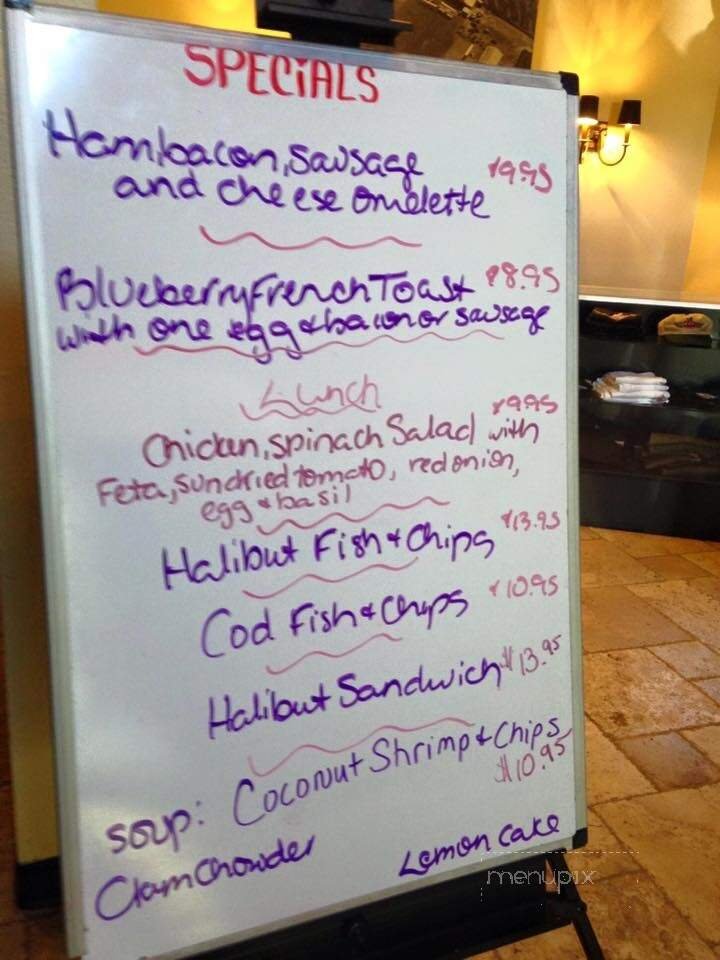 SPECiALS
Ham, bacon, sausage $9.95
and cheese omelette
Blueberry French Toast $8.95
with one egg & bacon or sausage
Lunch
$9.95
Chicken, spinach Salad with
Feta, sundried tomato, red onion,
egg & basil
Halibut Fish & Chips $13.95
Cod Fish & Chips $10.95
Halibut Sandwich $13.95
Coconut Shrimp & Chips
$10.95
soup:
Clam Chowder
Lemon Cake
menupix